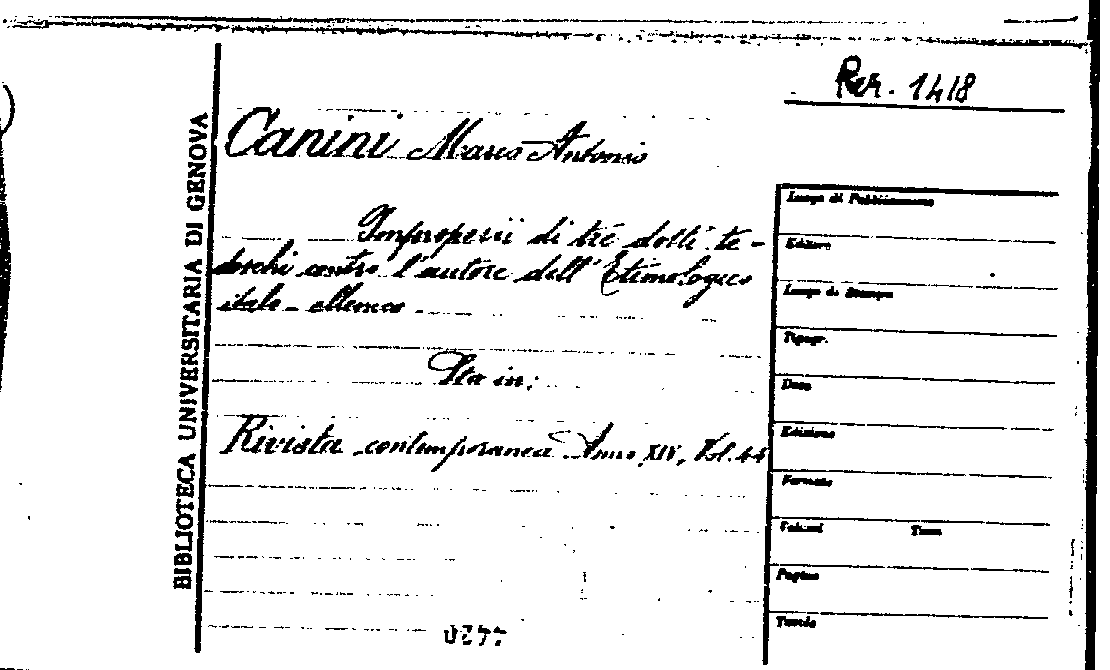 Rer. 1418
BIBLIOTECA UNIVERSITARIA DI GENOVA
Canini Marco Antonio
Improperii di tre dotti te-
deschi contro l'autore dell'Etimologico
italo-ellenico.
Sta in:
Rivista contemporanea Anno XIV, Vol. 44
Luogo di Pubblicazione
Editore
Luogo di Stampa
Tipogr.
Data
Edizione
Formato
Volumi Tomi
Pagine
Tavole